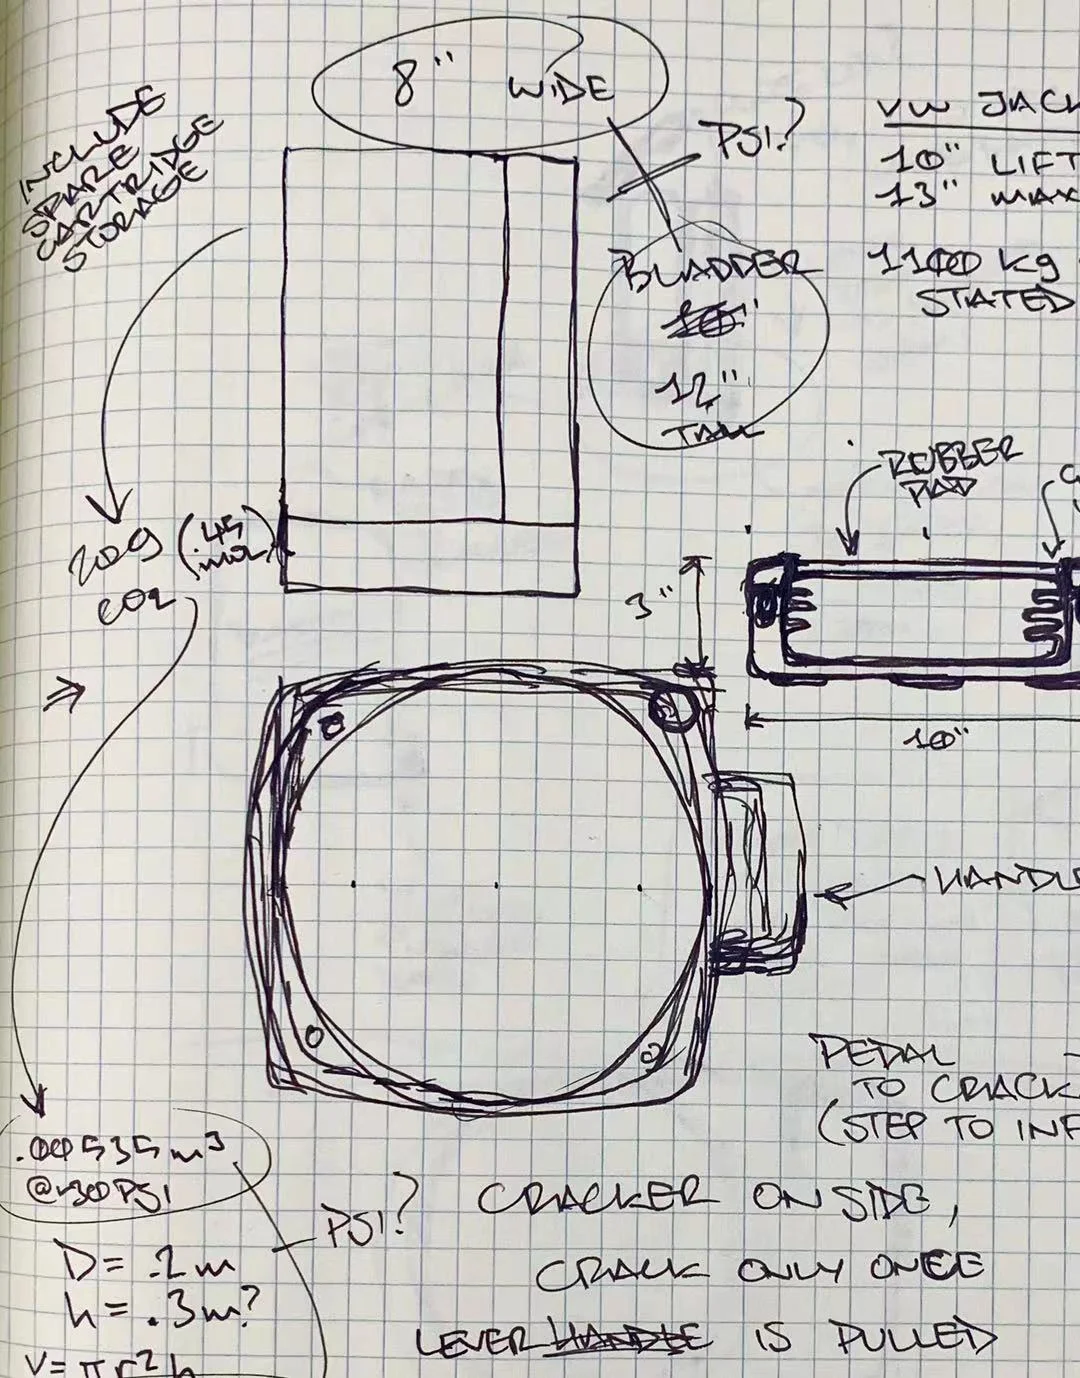 8" WIDE
INCLUDE
SPARE
CARTRIDGE
STORAGE
PSI?
VW JACK
10" LIFT
13" MAX
1100 kg
STATED
BLADDER
10"
12"
TALL
RUBBER
PAD
20g (.45
mol)
CO2
3"
10"
HANDLE
PEDAL
TO CRACK
(STEP TO INF
.00535m³
@~30PSI
PSI?
D= .2m
h= .3m?
V= πr²h
CRACKER ON SIDE,
CRACK ONLY ONCE
LEVER HANDLE IS PULLED